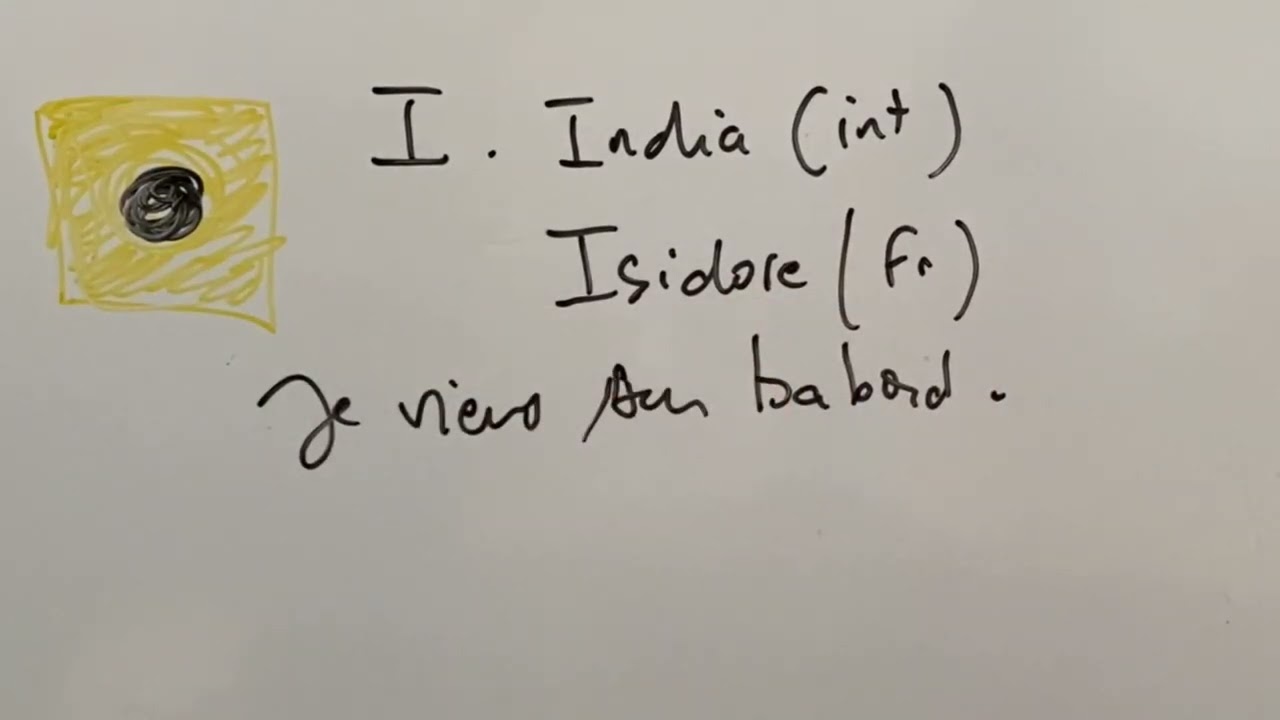 I. India (int)
Isidore (Fr)
Je viens sur babord.